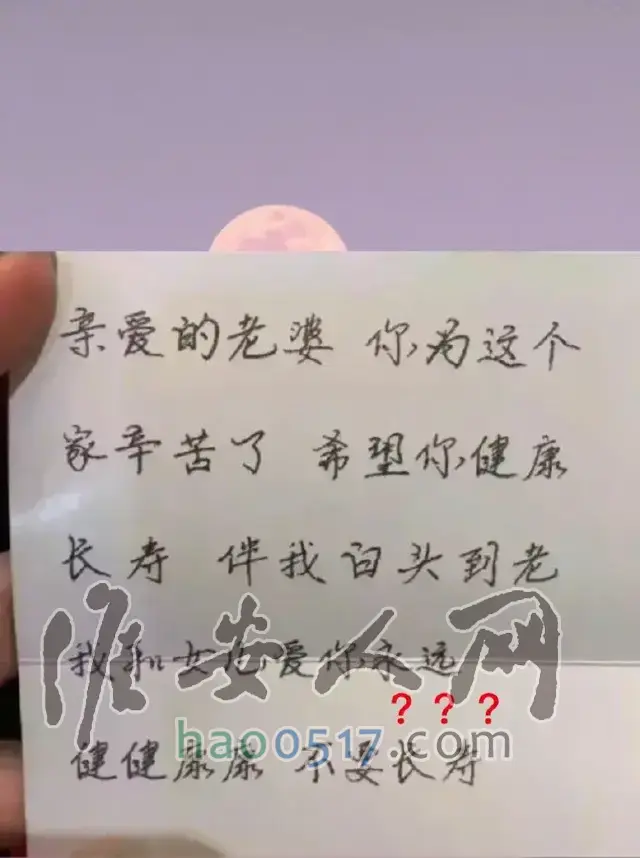 亲爱的老婆 你为这个
家辛苦了 希望你健康
长寿 伴我白头到老
我和女儿爱你永远
???
健健康康 不要长寿
淮安人网
hao0517.com